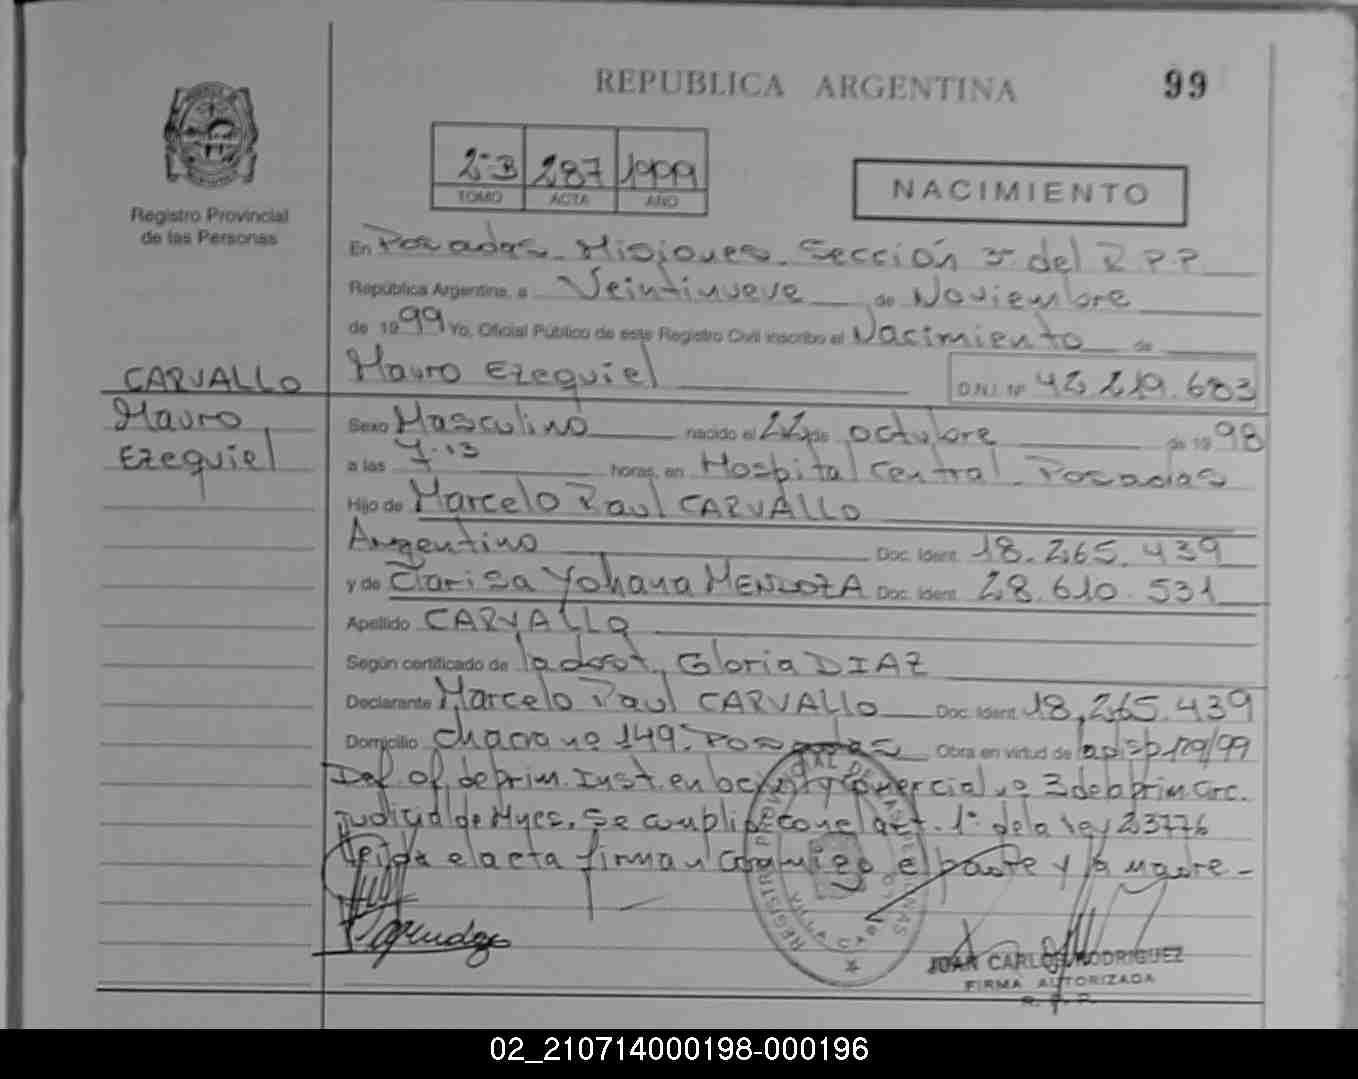 REPUBLICA ARGENTINA
99
2-B 287 1999
TOMO ACTA AÑO
NACIMIENTO
Registro Provincial
de las Personas
En Posadas - Misiones - Sección 3ª del R.P.P.
República Argentina, a Veintinueve de Noviembre
de 1999 Yo, Oficial Público de este Registro Civil inscribo el Nacimiento de
Mauro Ezequiel D.N.I. Nº 42.219.683
CARVALLO
Mauro
Ezequiel
Sexo Masculino nacido el 22 de octubre de 1998
a las 7.13 horas, en Hospital Central - Posadas
Hijo de Marcelo Raul CARVALLO
Argentino Doc. Ident. 18.265.439
y de Clarisa Yohana MENDOZA Doc. Ident. 28.610.531
Apellido CARVALLO
Según certificado de la dra. Gloria DIAZ
Declarante Marcelo Raul CARVALLO Doc. Ident. 18.265.439
Domicilio chacra nº 149. Posadas Obra en virtud de 129/99
Def. of. de prim. Inst. en y comercial nº 3 de la prim circ.
judicial de Mnes. Se cumple con el art. 1º de la ley 23776
Leida el acta firman conmigo el padre y la madre -
JUAN CARLOS RODRIGUEZ
FIRMA AUTORIZADA
R. P. P.
02_210714000198-000196